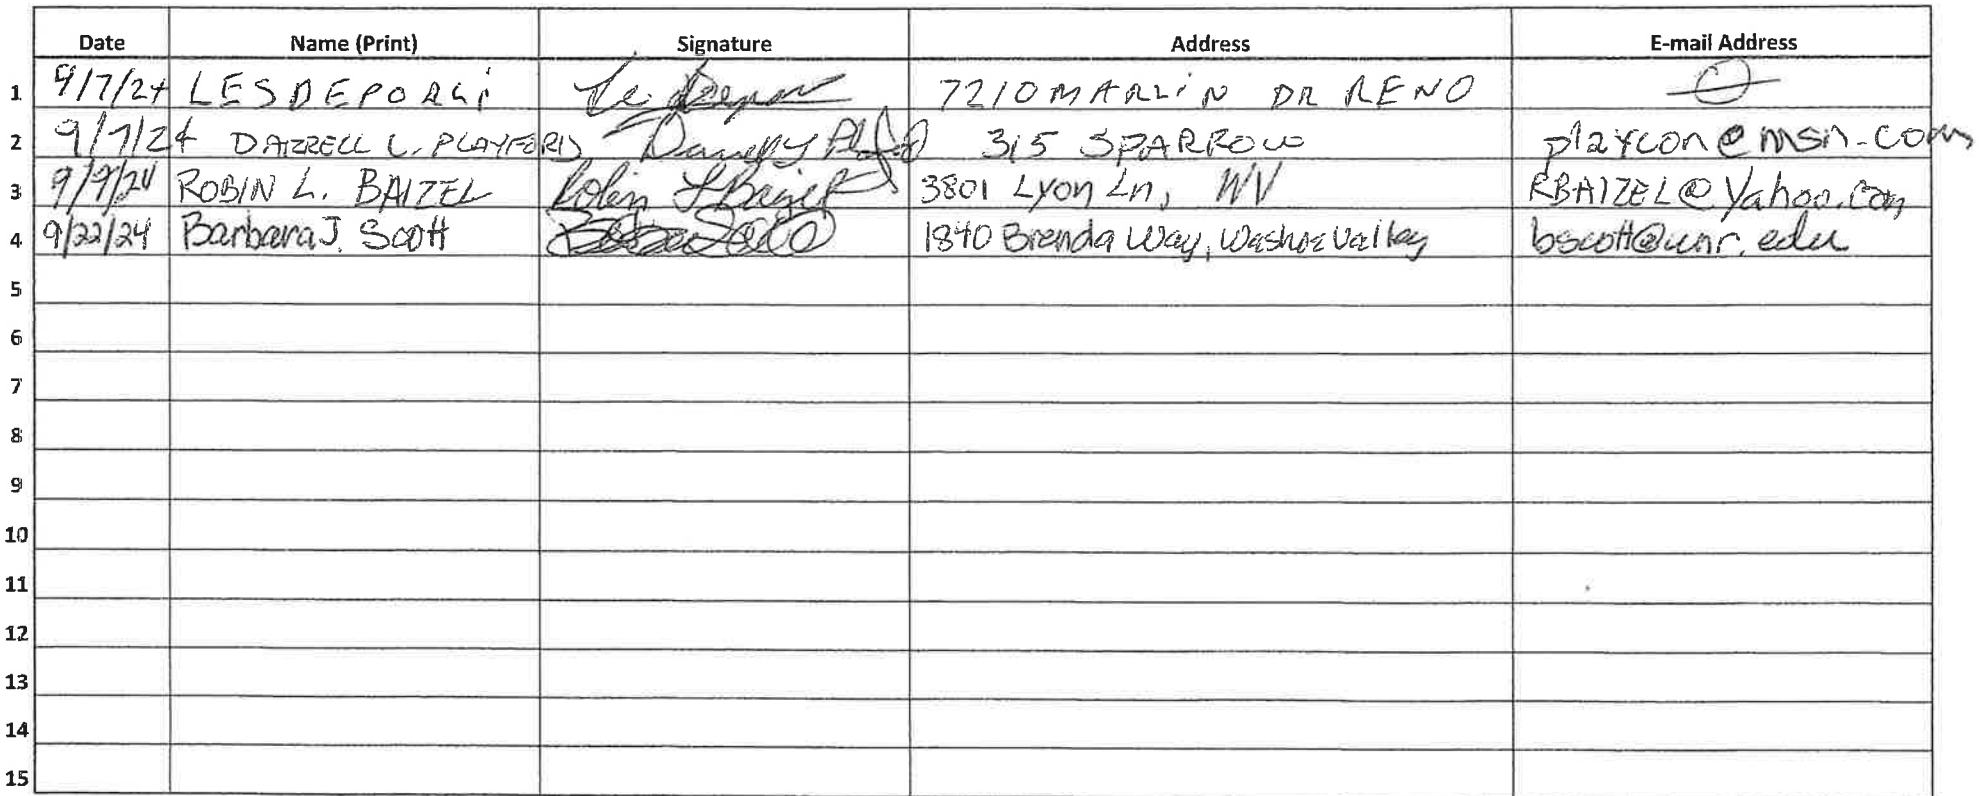 Date Name (Print) Signature Address E-mail Address
1 9/7/24 LES DEPOALI 7210 MARLIN DR RENO
2 9/7/24 DARRELL L. PLAYFORD 315 SPARROW playcon@msn.com
3 9/9/24 ROBIN L. BAIZEL Robin L Baizel 3801 Lyon Ln, WV RBAIZEL@Yahoo.com
4 9/22/24 Barbara J. Scott 1840 Brenda Way, Washoe Valley bscott@unr.edu
5
6
7
8
9
10
11
12
13
14
15